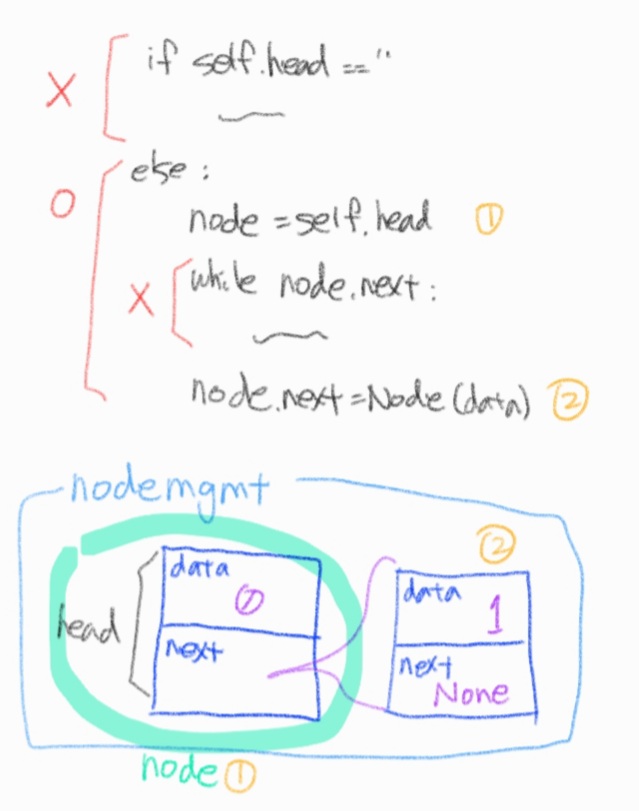 X
if self.head == ''
O
else :
node = self.head ①
X
while node.next :
node.next = Node (data) ②
nodemgmt
②
data
0
data
1
head
next
next
None
node ①